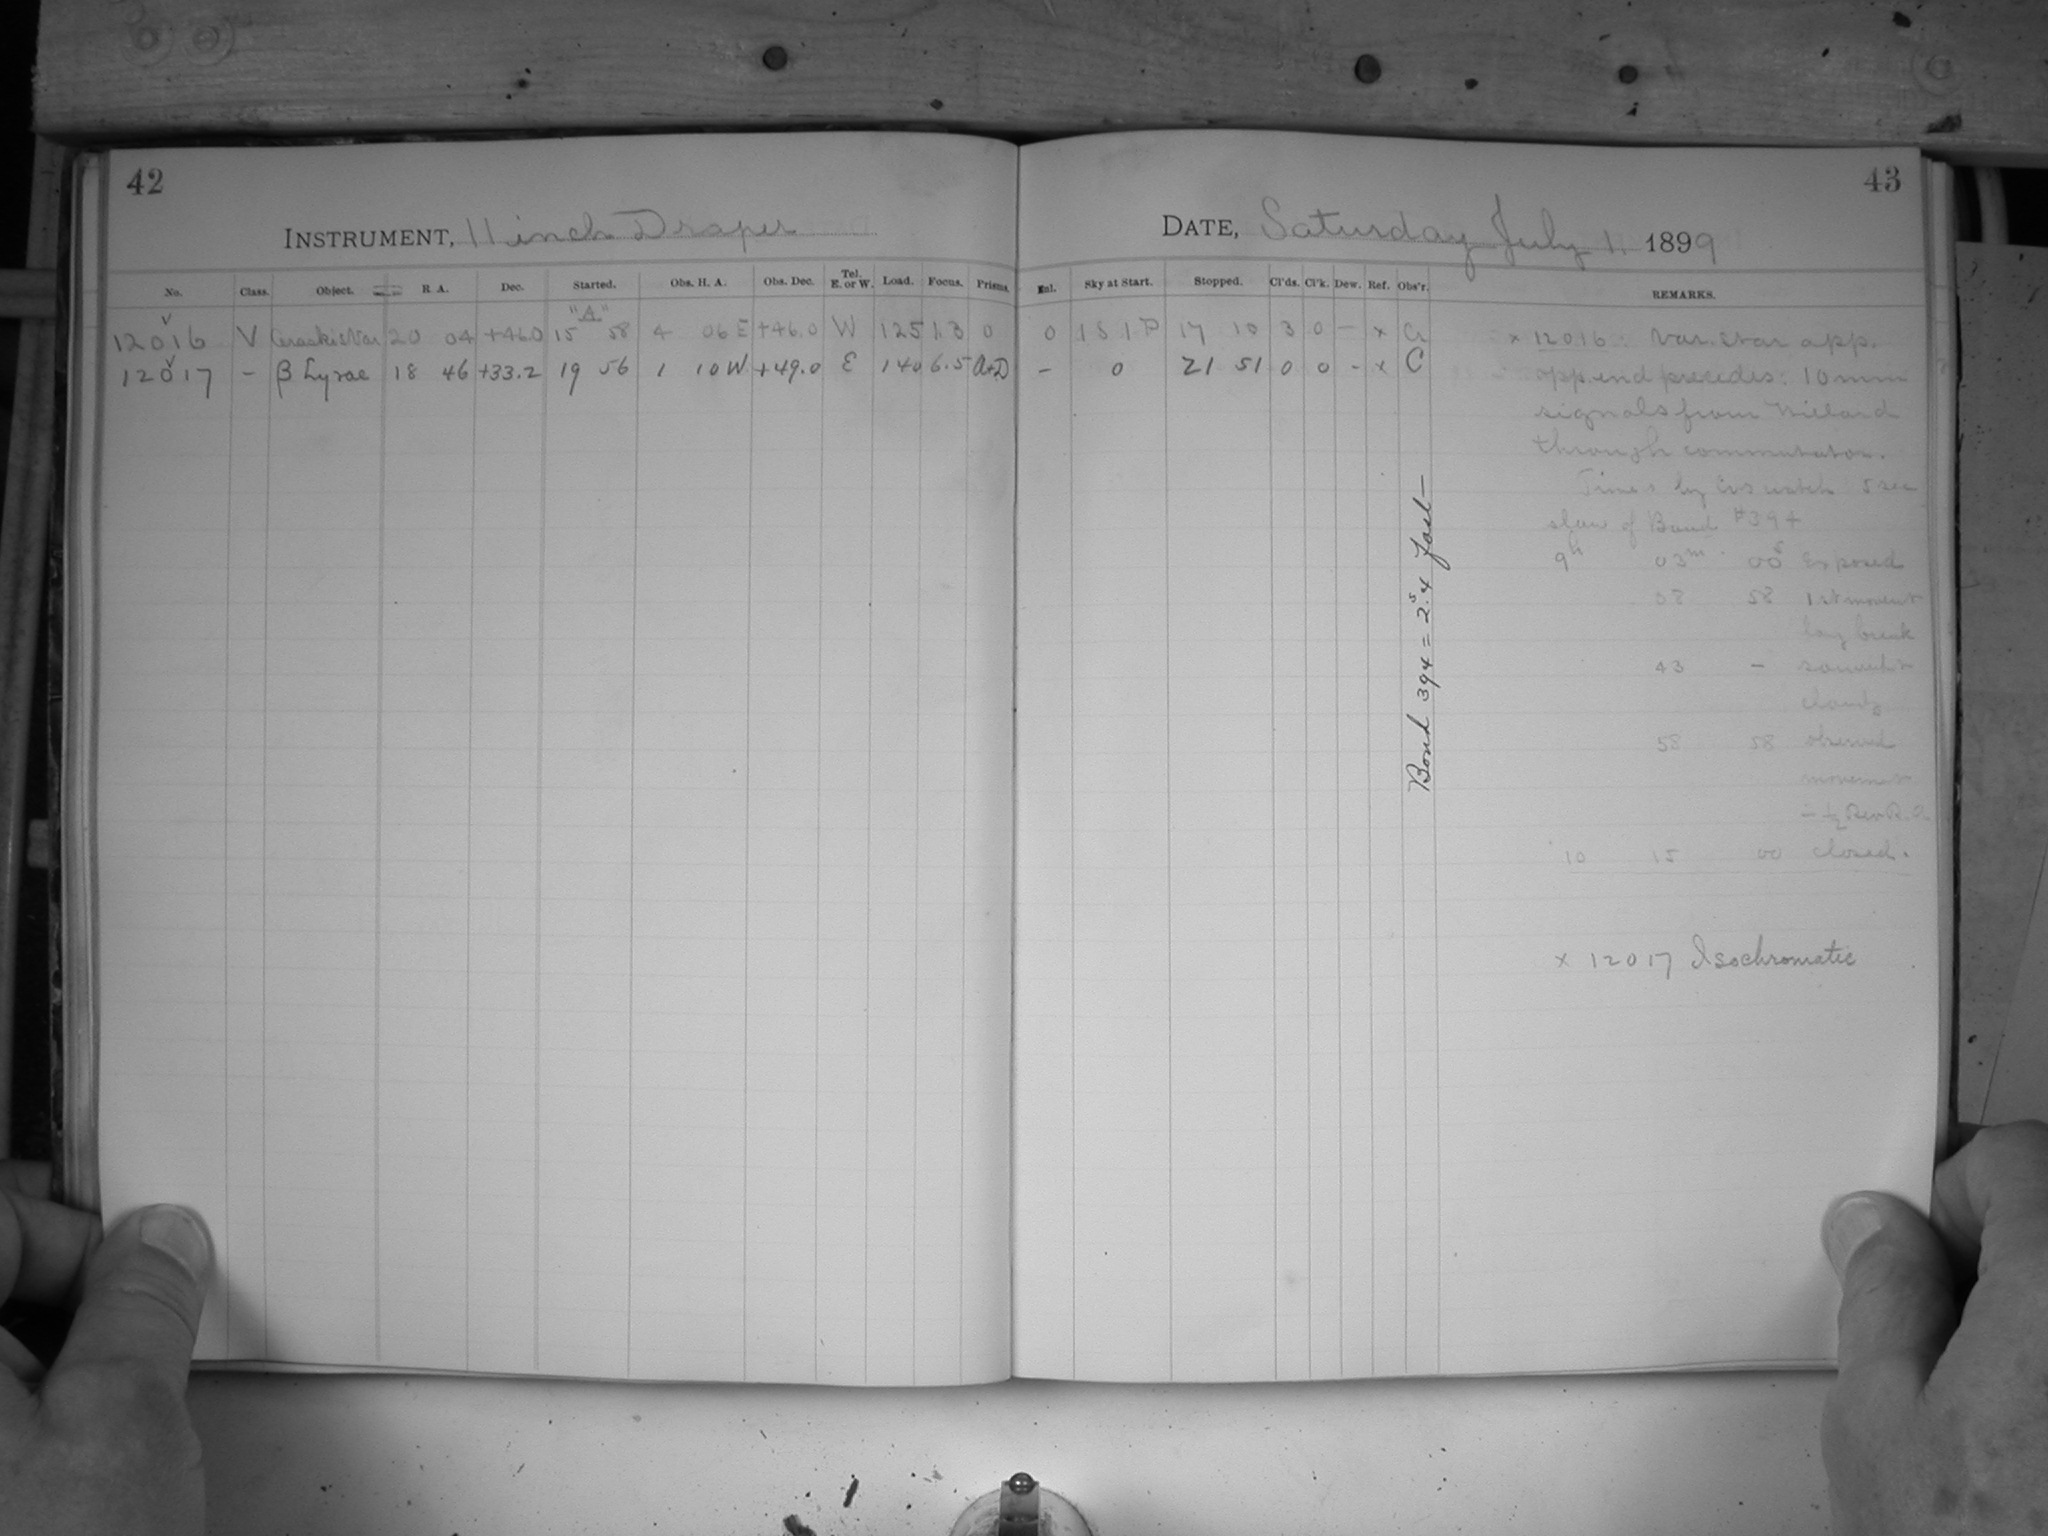 42
43
INSTRUMENT, 11 inch Draper
DATE, Saturday July 1. 1899
No. Class. Object. R. A. Dec. Started. Obs. H. A. Obs. Dec. Tel. E. or W. Load. Focus. Prisms.
Enl. Sky at Start. Stopped. Cl'ds. Cl'k. Dew. Ref. Obs'r. REMARKS.
"A"
12016 V 20 04 +46.0 15 58 4 06 E +46.0 W 125 1.3 0 0 17 10 3 0 — x
12017 – β Lyrae 18 46 +33.2 19 56 1 10 W +49.0 E 140 6.5 – 0 21 51 0 0 - x C
x 12016 Var. star app.
app end precedes: 10 mm
signals from Willard
through commutator.
Times by watch 5 sec
slow of Bond #394
9h 03m 00s Exposed
58 1st movemt
long break
43 –
clouds
58 58 observed
movemt
– ½ Rev R.A.
10 15 00 closed.
Bond 394 = 2s.4 fast—
x 12017 Isochromatic